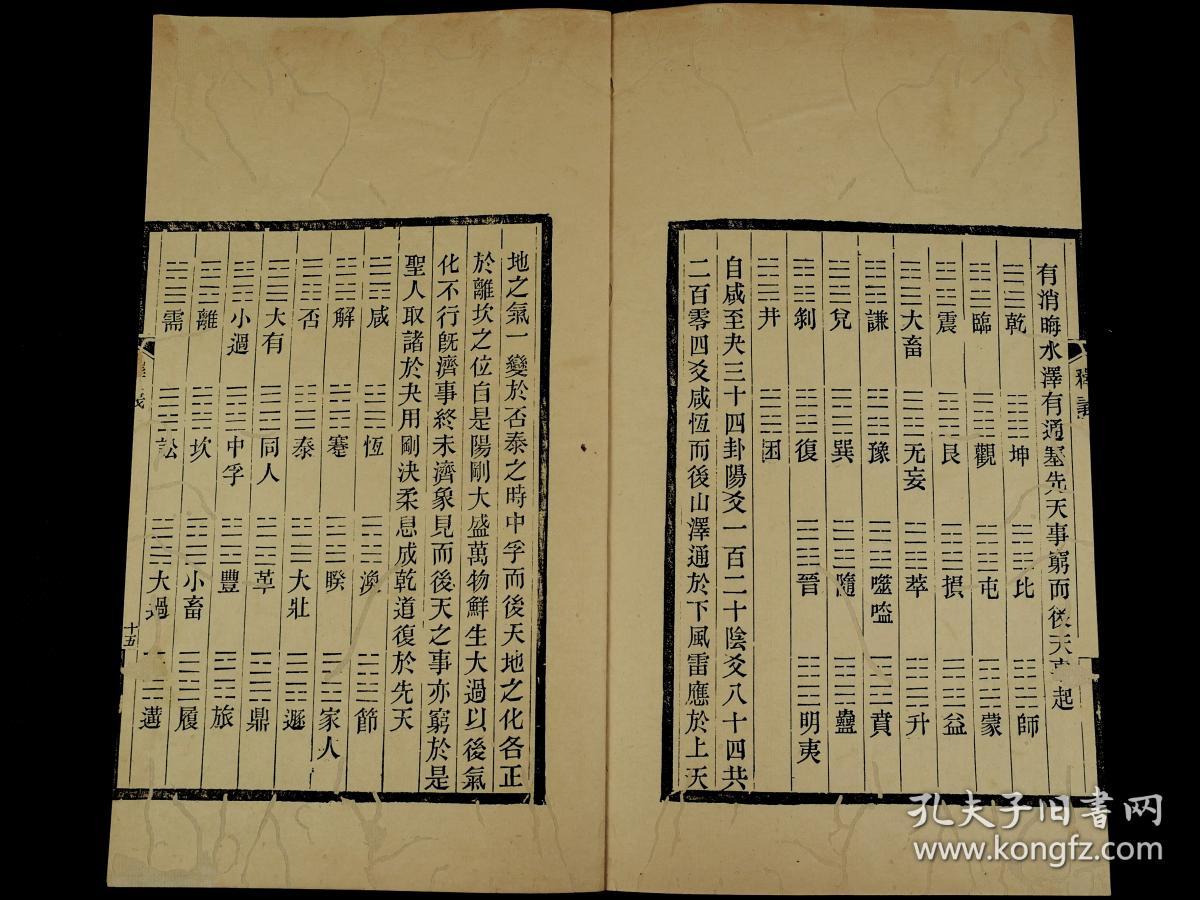 釋義
有消晦水澤有通塞先天事窮而後天事起
乾 坤 比 師
臨 觀 屯 蒙
震 艮 損 益
大畜 无妄 萃 升
謙 豫 噬嗑 賁
兌 巽 隨 蠱
剝 復 晉 明夷
井 困
自咸至夬三十四卦陽爻一百二十陰爻八十四共
二百零四爻咸恆而後山澤通於下風雷應於上天
地之氣一變於否泰之時中孚而後天地之化各正
於離坎之位自是陽剛大盛萬物鮮生大過以後氣
化不行既濟事終未濟象見而後天之事亦窮於是
聖人取諸於夬用剛決柔息成乾道復於先天
咸 恆 渙 節
解 蹇 睽 家人
否 泰 大壯 遯
大有 同人 革 鼎
小過 中孚 豐 旅
離 坎 小畜 履
需 訟 大過 遘
十五
孔夫子旧书网
www.kongfz.com